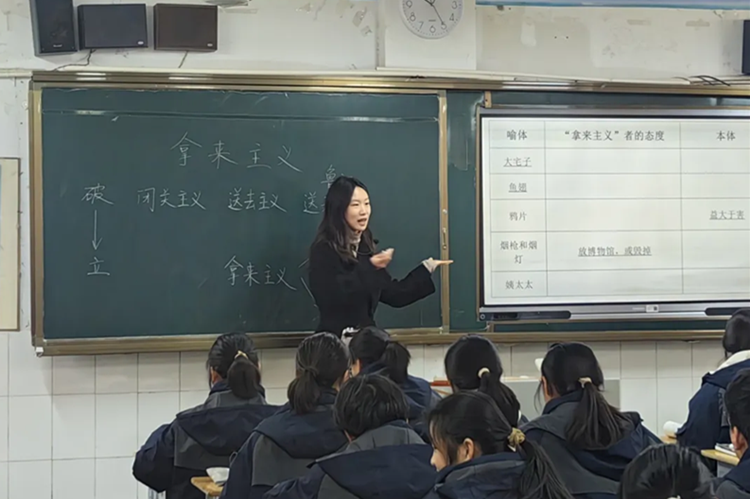 拿来主义
鲁
破 闭关主义 送去主义 送
立 拿来主义
喻体 “拿来主义”者的态度 本体
大宅子
鱼翅
鸦片 益大于害
烟枪和烟灯 放博物馆，或毁掉
姨太太